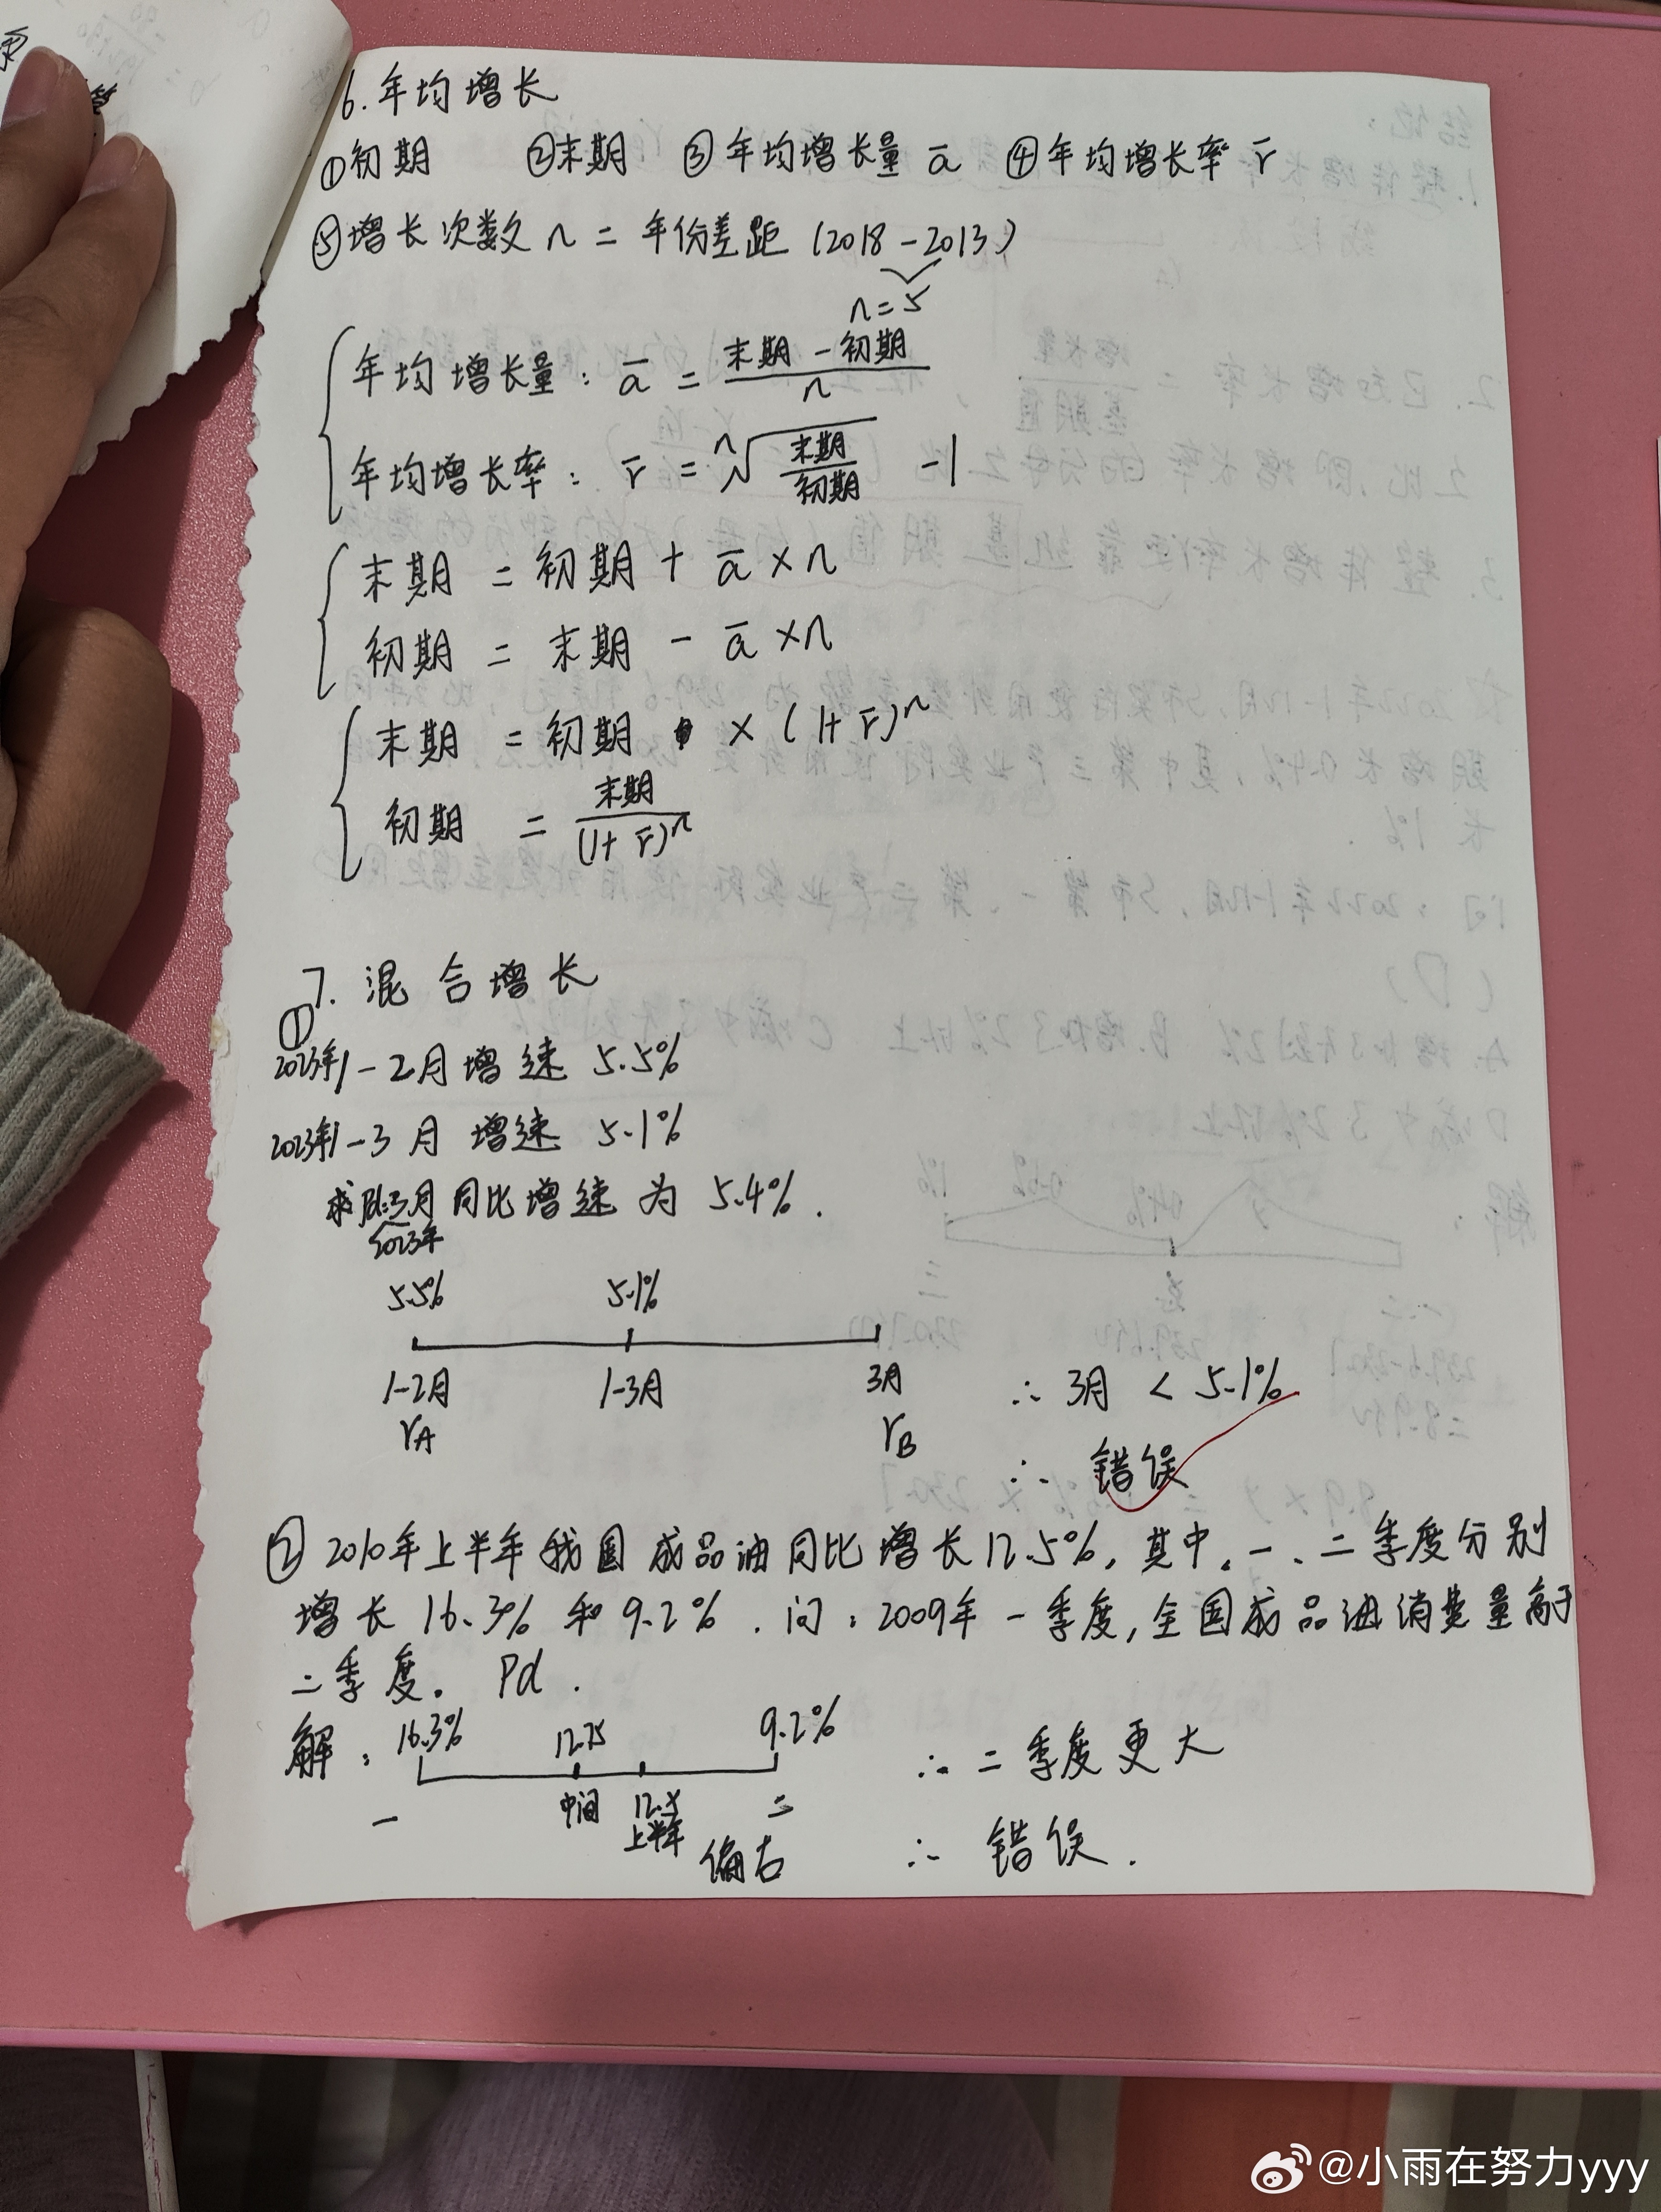 6. 年均增长
①初期 ②末期 ③年均增长量 ā ④年均增长率 r̄
⑤增长次数 n = 年份差距 (2018-2013)
n=5
年均增长量: ā = (末期-初期)/n
年均增长率: r̄ = ⁿ√(末期/初期) -1
末期 = 初期 + ā×n
初期 = 末期 - ā×n
末期 = 初期 × (1+r̄)ⁿ
初期 = 末期/(1+r̄)ⁿ
7. 混合增长
①
2023年1-2月增速 5.5%
2023年1-3月 增速 5.1%
求 3月同比增速为 5.4%.
2023年
5.5% 5.1%
1-2月 1-3月 3月 ∴ 3月 < 5.1%
rA rB
∴ 错误
② 2010年上半年我国成品油同比增长12.5%, 其中, 一、二季度分别
增长16.3%和9.2%. 问: 2009年一季度,全国成品油消费量高于
二季度. Pd.
解: 16.3% 12.75 9.2% ∴ 二季度更大
一 中间 12.5 二
上半年
偏右 ∴ 错误.
@小雨在努力yyy